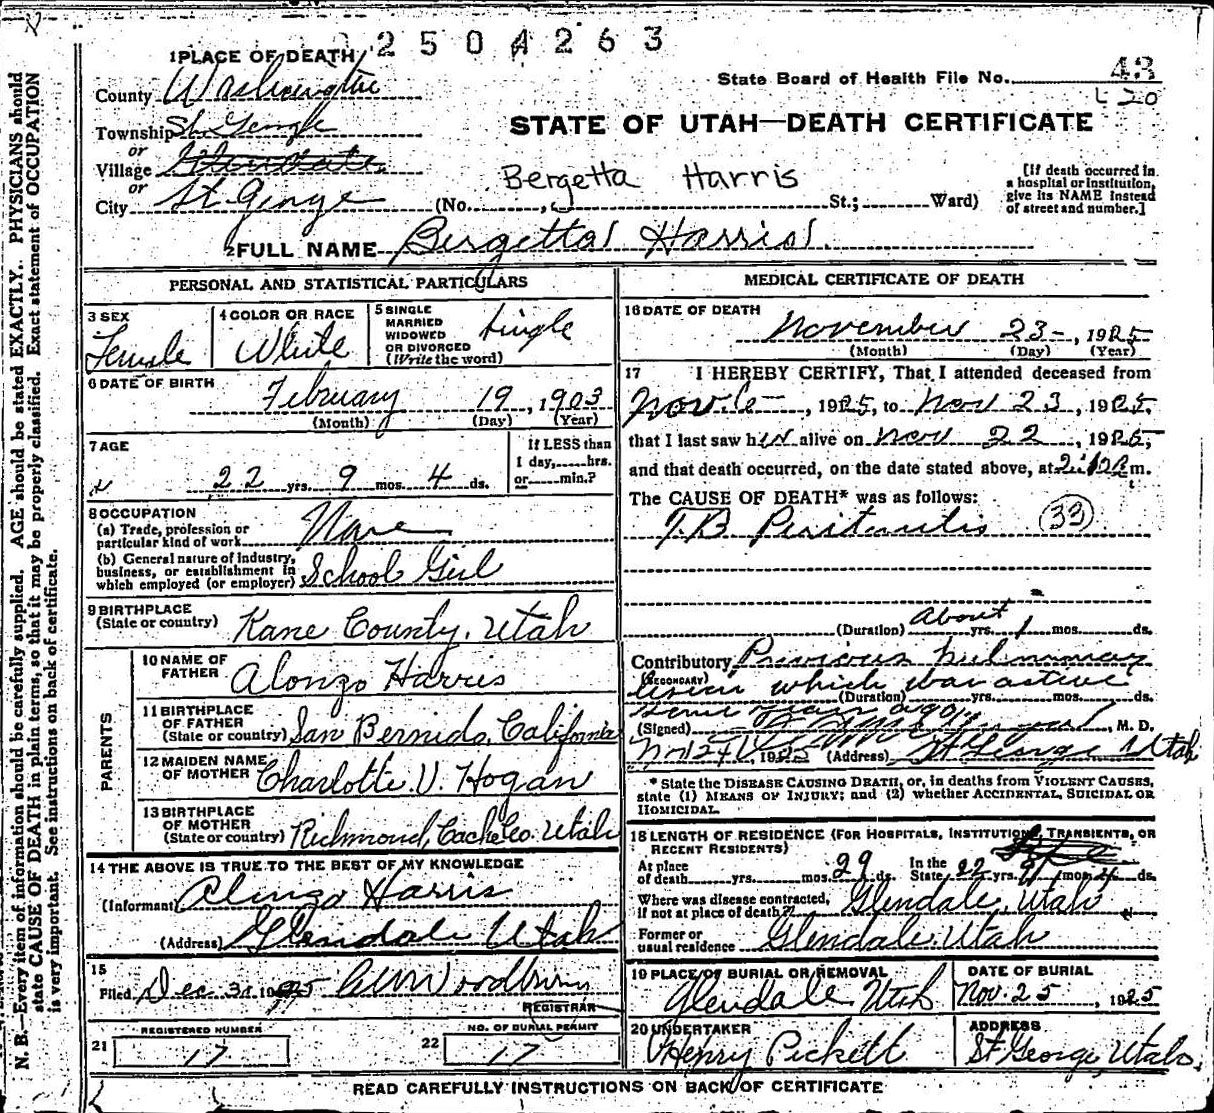 2504263
1 PLACE OF DEATH
State Board of Health File No. 43
County Washington
L 20
Township St. George
STATE OF UTAH—DEATH CERTIFICATE
or
Village Glendale
or
Bergetta Harris
[If death occurred in a hospital or institution, give its NAME instead of street and number.]
City St. George (No. , St.; Ward)
2 FULL NAME Bergetta Harris
PERSONAL AND STATISTICAL PARTICULARS
3 SEX Female
4 COLOR OR RACE White
5 SINGLE MARRIED WIDOWED OR DIVORCED (Write the word) Single
6 DATE OF BIRTH February 19, 1903
(Month) (Day) (Year)
7 AGE
22 yrs. 9 mos. 4 ds.
If LESS than 1 day, hrs. or min.?
8 OCCUPATION
(a) Trade, profession or particular kind of work None
(b) General nature of industry, business, or establishment in which employed (or employer) School Girl
9 BIRTHPLACE (State or country) Kane County, Utah
PARENTS
10 NAME OF FATHER Alonzo Harris
11 BIRTHPLACE OF FATHER (State or country) San Bernido, California
12 MAIDEN NAME OF MOTHER Charlotte V. Hogan
13 BIRTHPLACE OF MOTHER (State or country) Richmond, Cache Co. Utah
14 THE ABOVE IS TRUE TO THE BEST OF MY KNOWLEDGE
(Informant) Alonzo Harris
(Address) Glendale Utah
15
Filed Dec 31 1925
REGISTRAR
REGISTERED NUMBER
21 17
NO. OF BURIAL PERMIT
22 17
MEDICAL CERTIFICATE OF DEATH
16 DATE OF DEATH
November 23, 1925
(Month) (Day) (Year)
17 I HEREBY CERTIFY, That I attended deceased from
Nov. 6, 1925, to Nov 23, 1925,
that I last saw her alive on Nov 22, 1925,
and that death occurred, on the date stated above, at m.
The CAUSE OF DEATH* was as follows:
T.B Peritonitis 33
(Duration) About yrs. 1 mos. ds.
Contributory Previous pulmonary
(SECONDARY)
lesion which was active
(Duration) yrs. mos. ds.
some years ago
(Signed) M. D.
Nov 24, 1925 (Address) St George Utah
* State the DISEASE CAUSING DEATH, or, in deaths from VIOLENT CAUSES, state (1) MEANS OF INJURY; and (2) whether ACCIDENTAL, SUICIDAL OR HOMICIDAL.
18 LENGTH OF RESIDENCE (FOR HOSPITALS, INSTITUTIONS, TRANSIENTS, OR RECENT RESIDENTS)
At place of death yrs. mos. 29 ds. In the State, 22 yrs. 9 mos. 4 ds.
Where was disease contracted, if not at place of death? Glendale, Utah
Former or usual residence Glendale, Utah
19 PLACE OF BURIAL OR REMOVAL
Glendale Utah
DATE OF BURIAL
Nov. 25, 1925
20 UNDERTAKER
Henry Pickett
ADDRESS
St George, Utah.
READ CAREFULLY INSTRUCTIONS ON BACK OF CERTIFICATE
N. B.—Every item of information should be carefully supplied. AGE should be stated EXACTLY. PHYSICIANS should
state CAUSE OF DEATH in plain terms, so that it may be properly classified. Exact statement of OCCUPATION
is very important. See instructions on back of certificate.